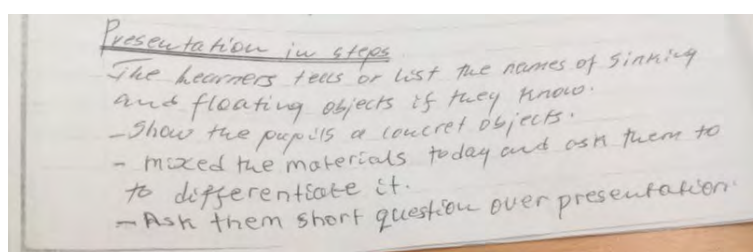 Presentation in steps
The learners tells or list the names of sinking
and floating objects if they know.
- Show the pupils a concret objects.
- mixed the materials today and ask them to
to differentiate it.
- Ask them short question over presentation.